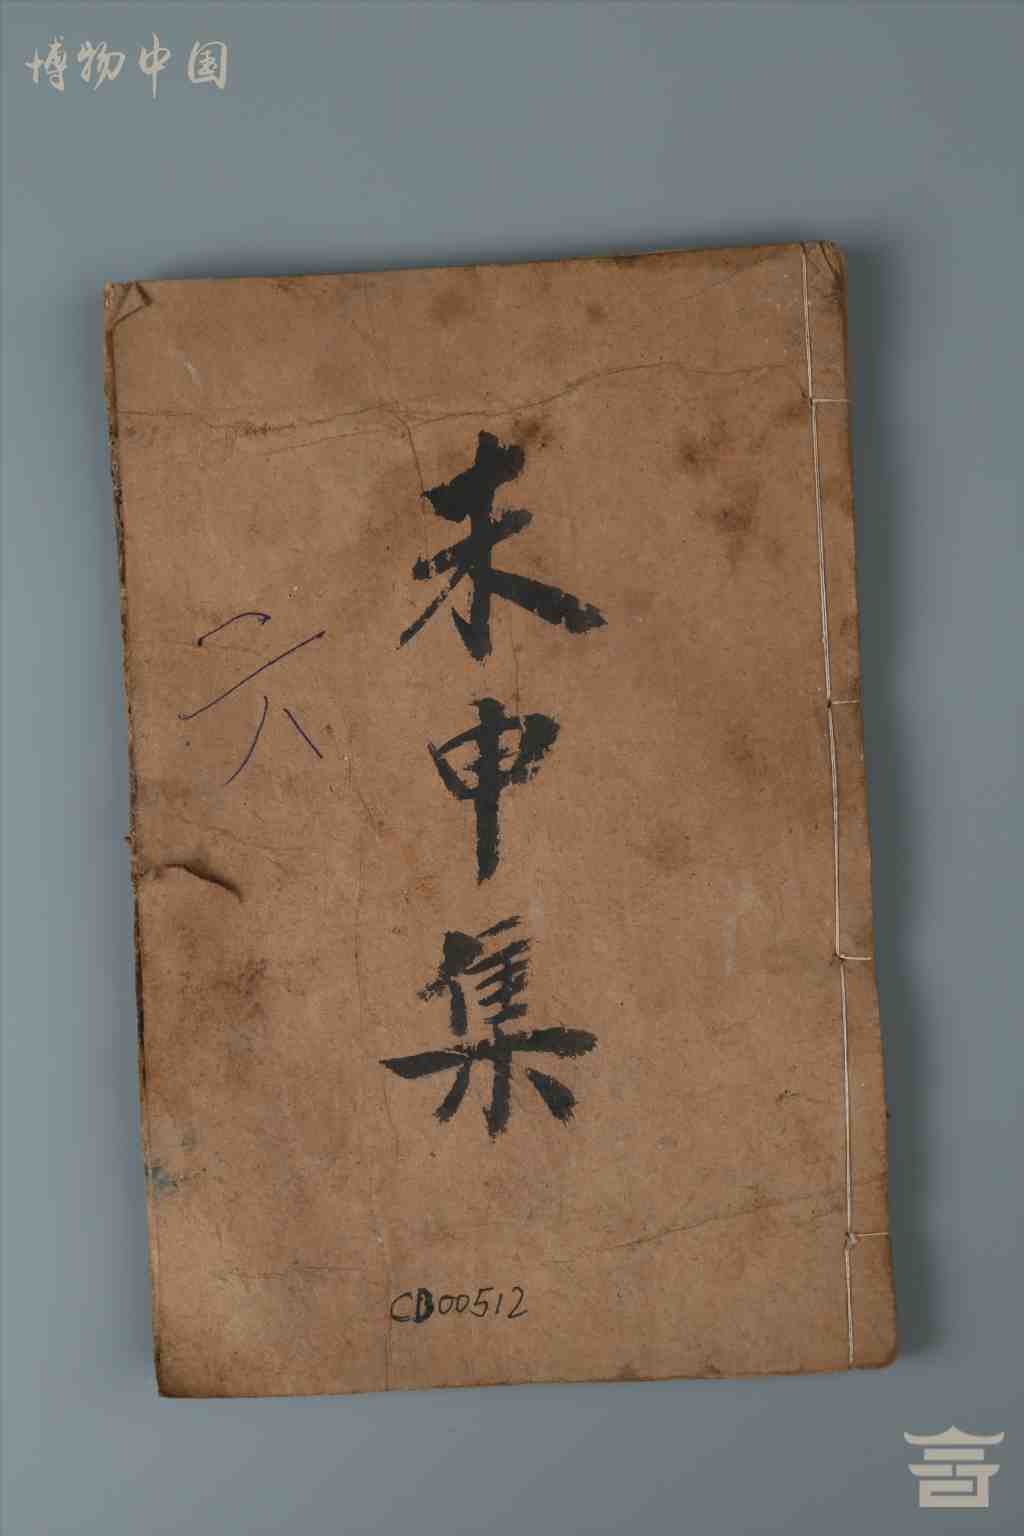 博物中国
未申集
六
CD00512